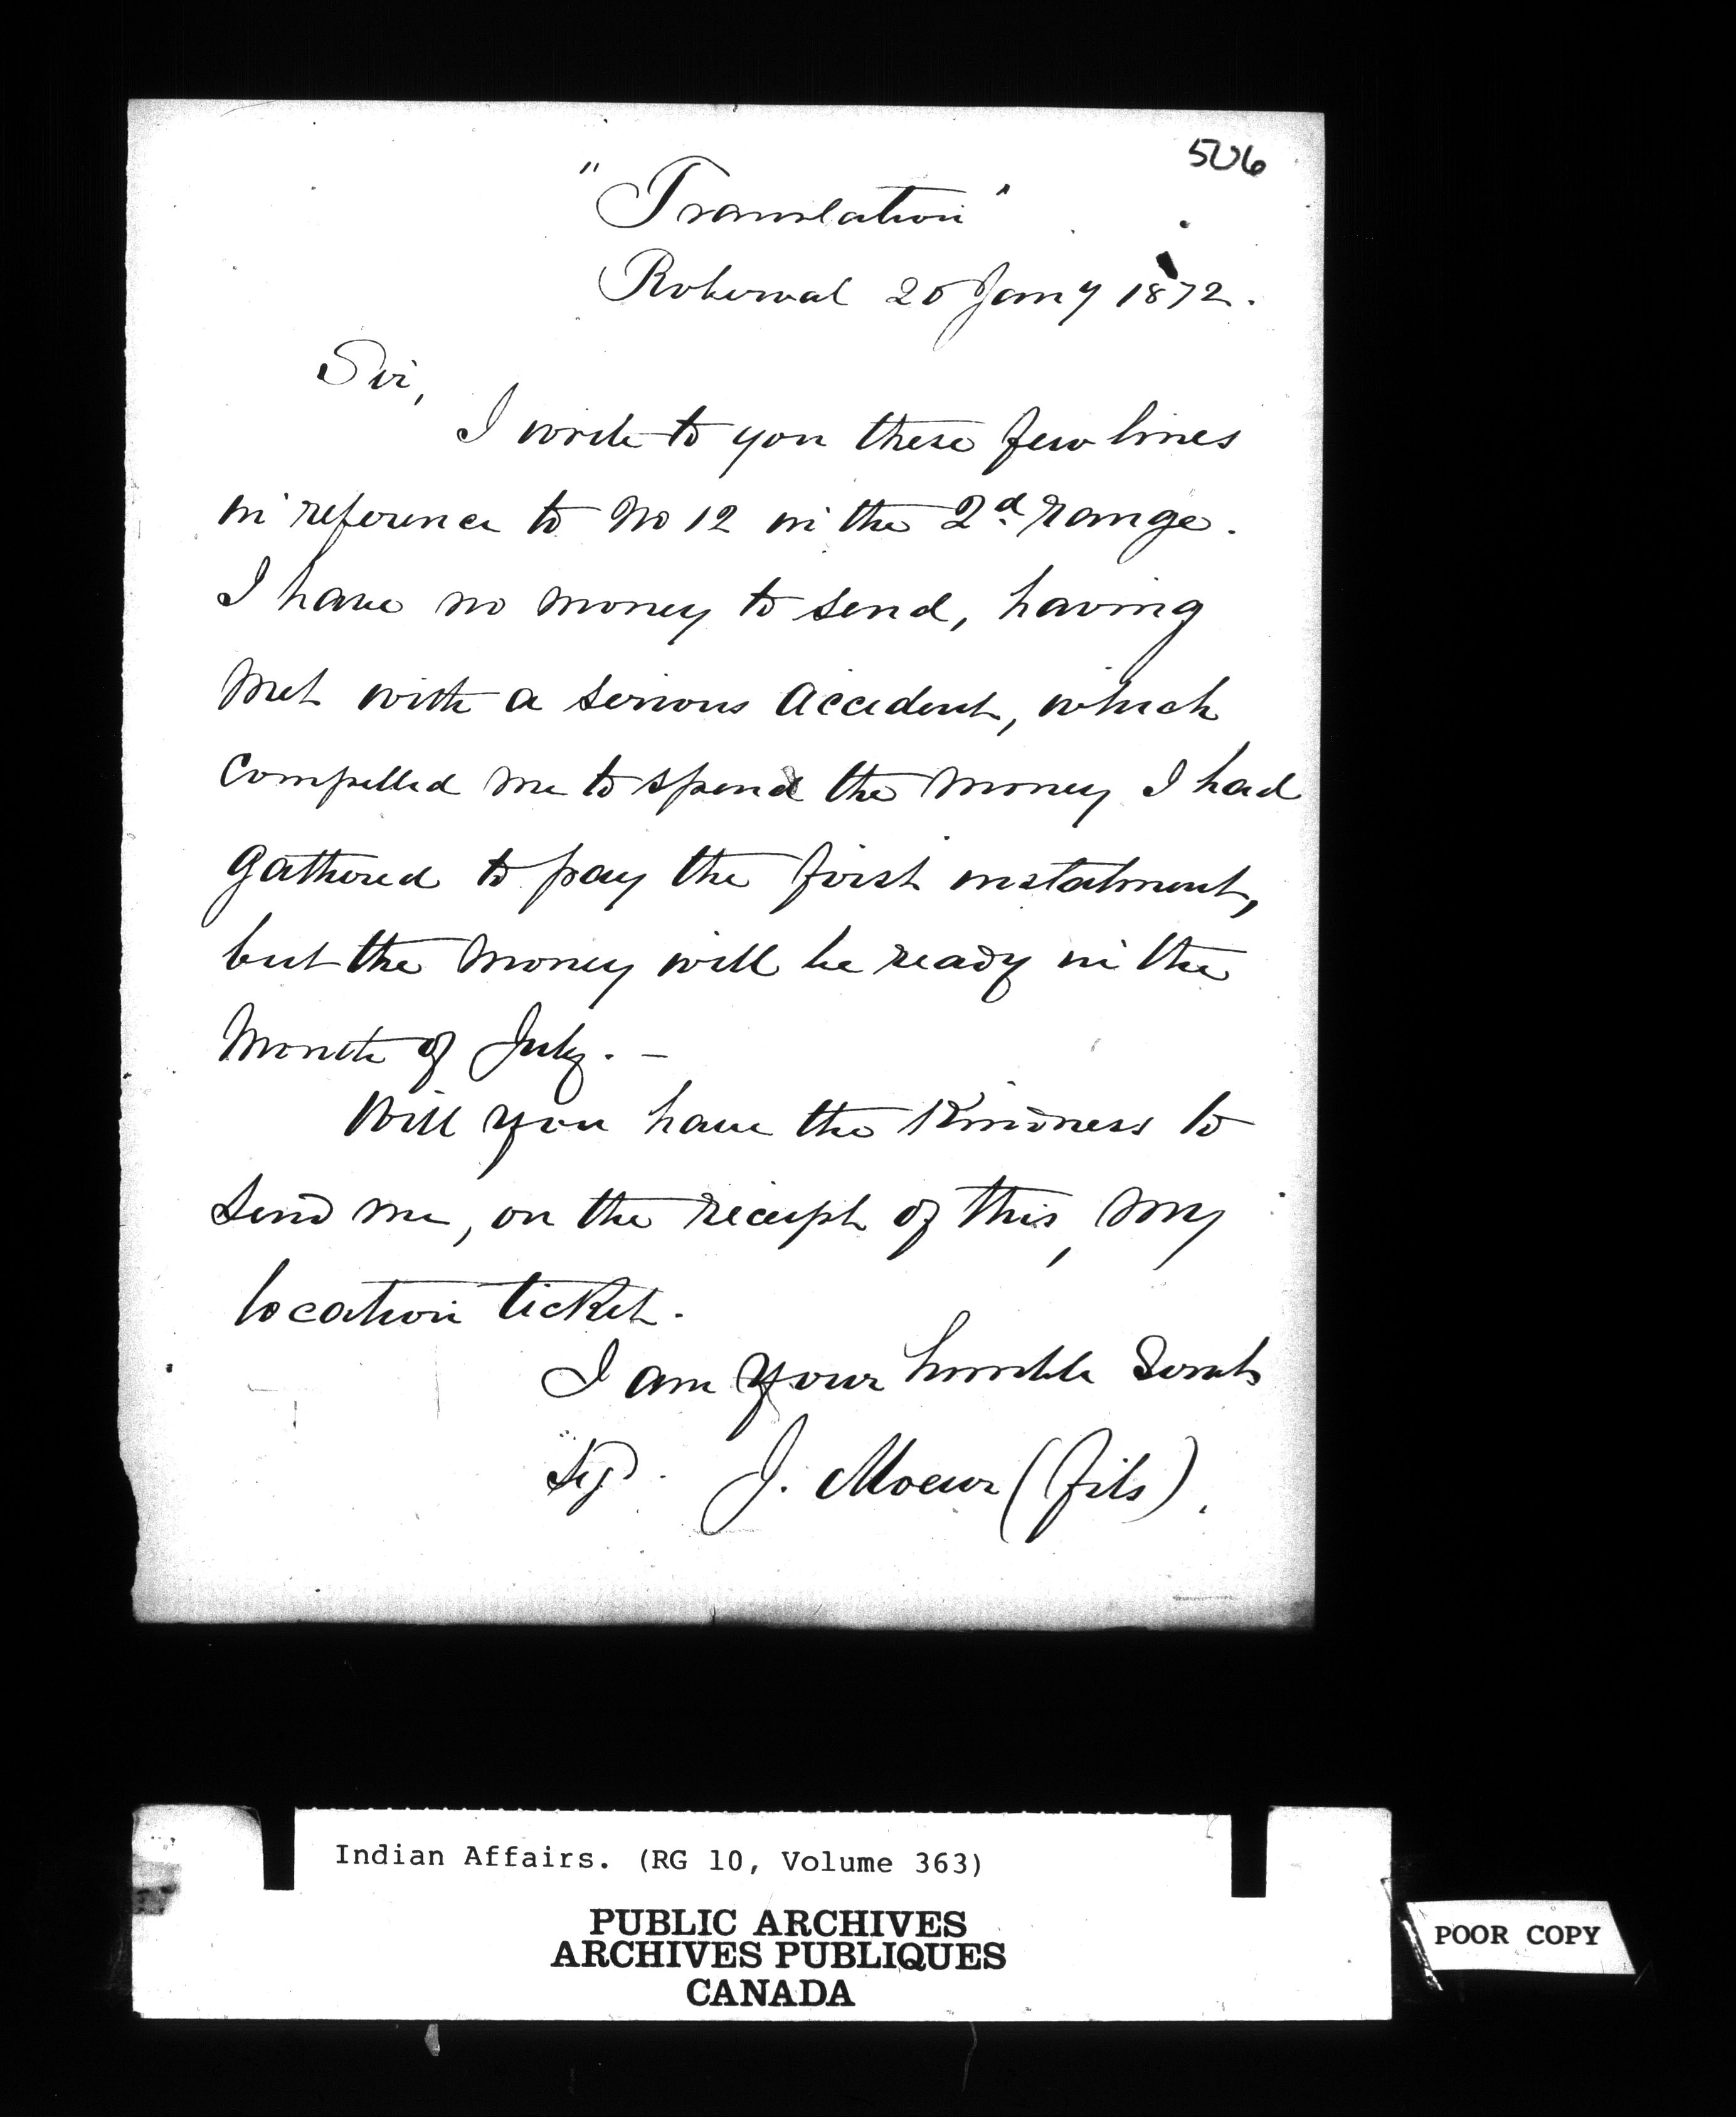 506
"Translation"
Roberval 20 Jany 1872.
Sir,
I write to you these few lines
in reference to No 12 in the 2d range.
I have no money to send, having
met with a serious accident, which
compelled me to spend the money I had
gathered to pay the first instalment,
but the money will be ready in the
month of July. -
Will you have the Kindness to
send me, on the receipt of this, my
location ticket.
I am your humble Servt
Sgd. J. Moeur (fils).
Indian Affairs. (RG 10, Volume 363)
PUBLIC ARCHIVES
ARCHIVES PUBLIQUES
CANADA
POOR COPY